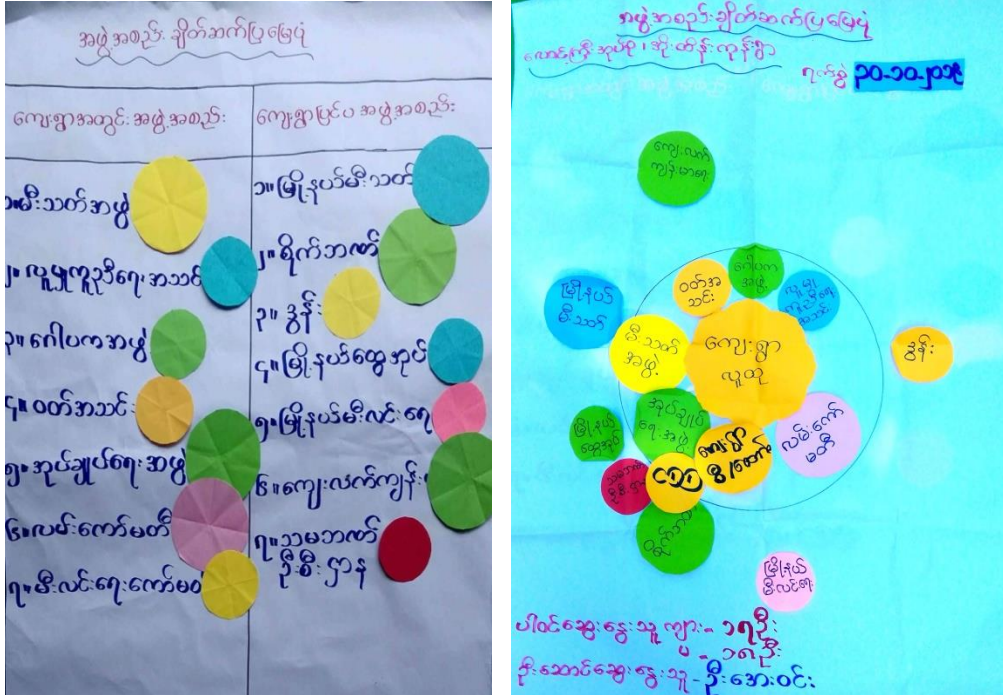 အဖွဲ့အစည်း ချိတ်ဆက်ပြမြေပုံ
ကျေးရွာအတွင်း အဖွဲ့အစည်း
ကျေးရွာပြင်ပ အဖွဲ့အစည်း
၁။မီးသတ်အဖွဲ့
၂။လူမှုကူညီရေးအသင်း
၃။ဂေါပကအဖွဲ့
၄။ဝတ်အသင်း
၅။အုပ်ချုပ်ရေးအဖွဲ့
၆။လမ်းကော်မတီ
၇။မီးလင်းရေးကော်မတီ
၁။မြို့နယ်မီးသတ်
၂။ရိုက်ဘဏ်
၃။ဒွန်း
၄။မြို့နယ်ထွေအုပ်
၅။မြို့နယ်မီးလင်းရေး
၆။ကျေးလက်ကျန်း
၇။သမဘဏ်
ဦးစီးဌာန
အဖွဲ့အစည်းချိတ်ဆက်ပြမြေပုံ
အုပ်စု၊ အိုးတိန်းကုန်းရွာ
ရက်စွဲ ၃၀-၁၀-၂၀၁၉
ကျေးလက်
ကျန်းမာရေး
ဝတ်အ
သင်း
ဂေါပက
အဖွဲ့
လူမှု
ကူညီရေး
အသင်း
မြို့နယ်
မီးသတ်
မီးသတ်
အဖွဲ့
ကျေးရွာ
လူထု
ဒွန်း
အုပ်ချုပ်
ရေးအဖွဲ့
လမ်းကော်
မတီ
မြို့နယ်
ထွေအုပ်
ကျေးရွာ
သမဘဏ်
ဦးစီးဌာန
မြို့နယ်
မီးလင်းရေး
ပါဝင်ဆွေးနွေးသူ ကျား - ၁၇ဦး
မ - ၁၈ဦး
ဦးဆောင်ဆွေးနွေးသူ - ဦးအေးဝင်း